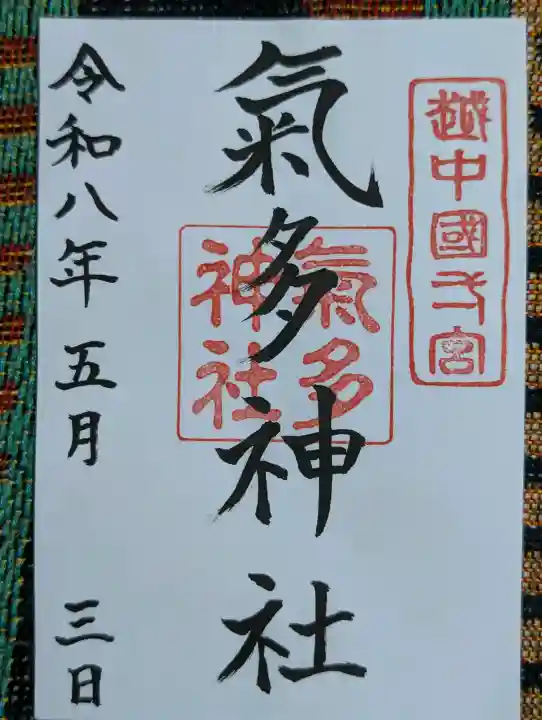 越中國弌宮
氣多神社
氣多
神社
令和八年五月三日